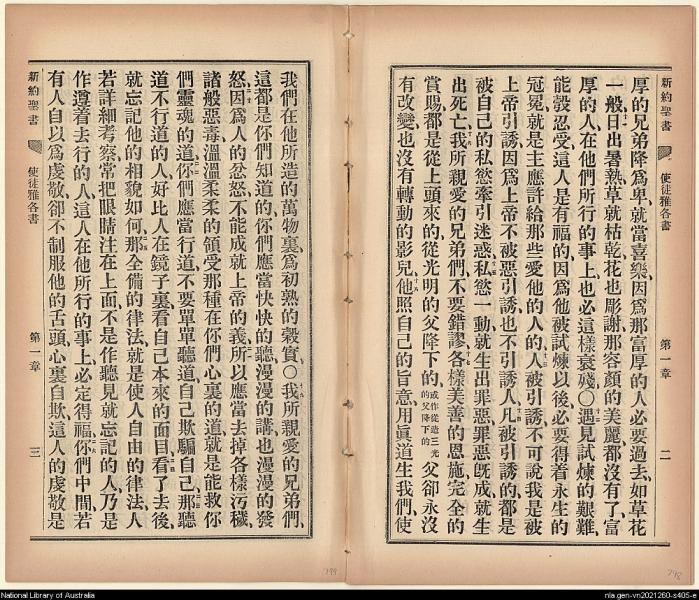 新約聖書
使徒雅各書
第一章
二
厚的兄弟降爲卑就當喜樂因爲那富厚的人必要過去如草花
一般日出暑熱草就枯乾花也彫謝那容顏的美麗都沒有了富
厚的人在他們所行的事上也必這樣衰殘○遇見試煉的艱難
能彀忍受這人是有福的因爲他被試煉以後必要得着永生的
冠冕就是主應許給那些愛他的人的人被引誘不可說我是被
上帝引誘因爲上帝不被惡引誘也不引誘人凡被引誘的都是
被自己的私慾牽引迷惑私慾一動就生出罪惡罪惡旣成就生
出死亡我所親愛的兄弟們不要錯謬各樣美善的恩施完全的
賞賜都是從上頭來的從光明的父降下的或作從造三光的父降下的父卻永沒
有改變也沒有轉動的影兒他照自己的旨意用眞道生我們使
我們在他所造的萬物裏爲初熟的穀實○我所親愛的兄弟們
這都是你們知道的你們應當快快的聽漫漫的講也漫漫的發
怒因爲人的忿怒不能成就上帝的義所以應當去掉各樣污穢
諸般惡毒溫溫柔柔的領受那種在你們心裏的道就是能救你
們靈魂的道你們應當行道不要單單聽道自己欺騙自己那聽
道不行道的人好比人在鏡子裏看自己本來的面目看了去後
就忘記他的相貌如何那全備的律法就是使人自由的律法人
若詳細考察常把眼睛注在上面不是作聽見就忘記的人乃是
作遵着去行的人這人在他所行的事上必定得福你們中間若
有人自以爲虔敬卻不制服他的舌頭心裏自欺這人的虔敬是
新約聖書
使徒雅各書
第一章
三
799
798
National Library of Australia
nla.gen-vn2021260-s405-e